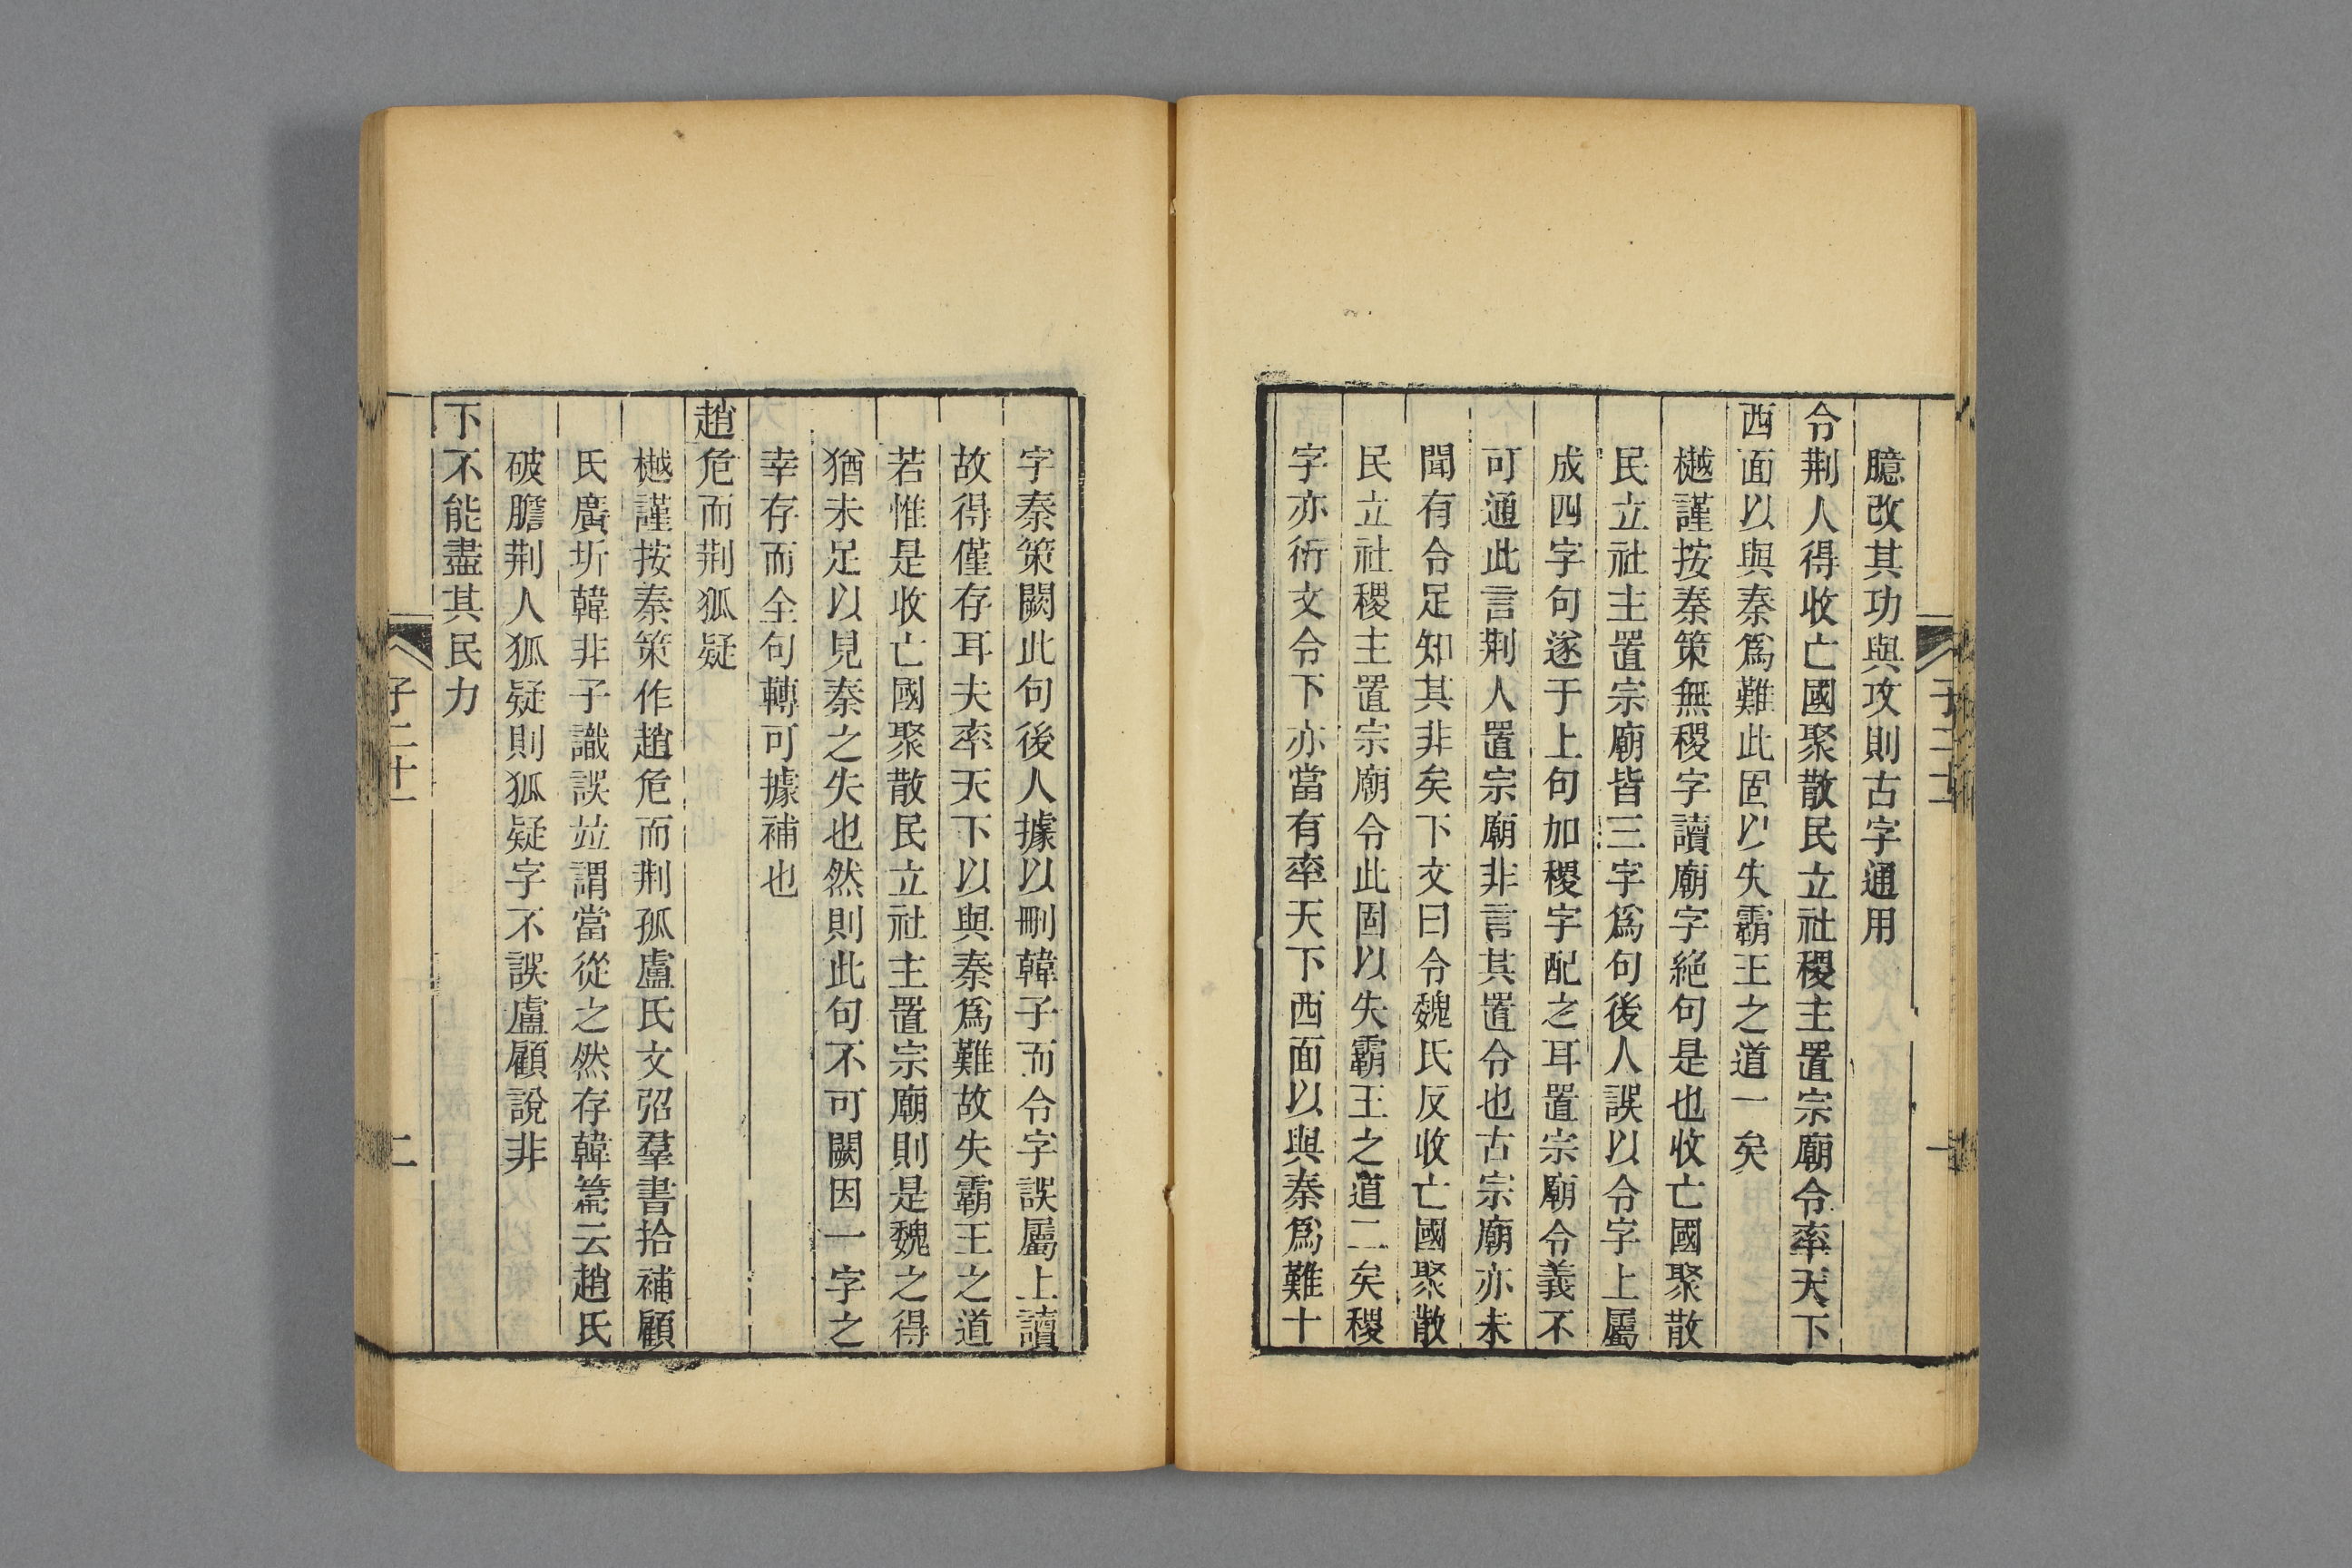 臆改其功與攻則古字通用
令荆人得收亡國聚散民立社稷主置宗廟令率天下
西面以與秦爲難此固以失霸王之道一矣
樾謹按秦策無稷字讀廟字絶句是也收亡國聚散
民立社主置宗廟皆三字爲句後人誤以令字上屬
成四字句遂于上句加稷字配之耳置宗廟令義不
可通此言荆人置宗廟非言其置令也古宗廟亦未
聞有令足知其非矣下文曰令魏氏反收亡國聚散
民立社稷主置宗廟令此固以失霸王之道二矣稷
字亦衍文令下亦當有率天下西面以與秦爲難十
字秦策闕此句後人據以刪韓子而令字誤屬上讀
故得僅存耳夫率天下以與秦爲難故失霸王之道
若惟是收亡國聚散民立社主置宗廟則是魏之得
猶未足以見秦之失也然則此句不可闕因一字之
幸存而全句轉可據補也
趙危而荆狐疑
樾謹按秦策作趙危而荆孤盧氏文弨羣書拾補顧
氏廣圻韓非子識誤竝謂當從之然存韓篇云趙氏
破膽荆人狐疑則狐疑字不誤盧顧說非
下不能盡其民力
子二十一
二